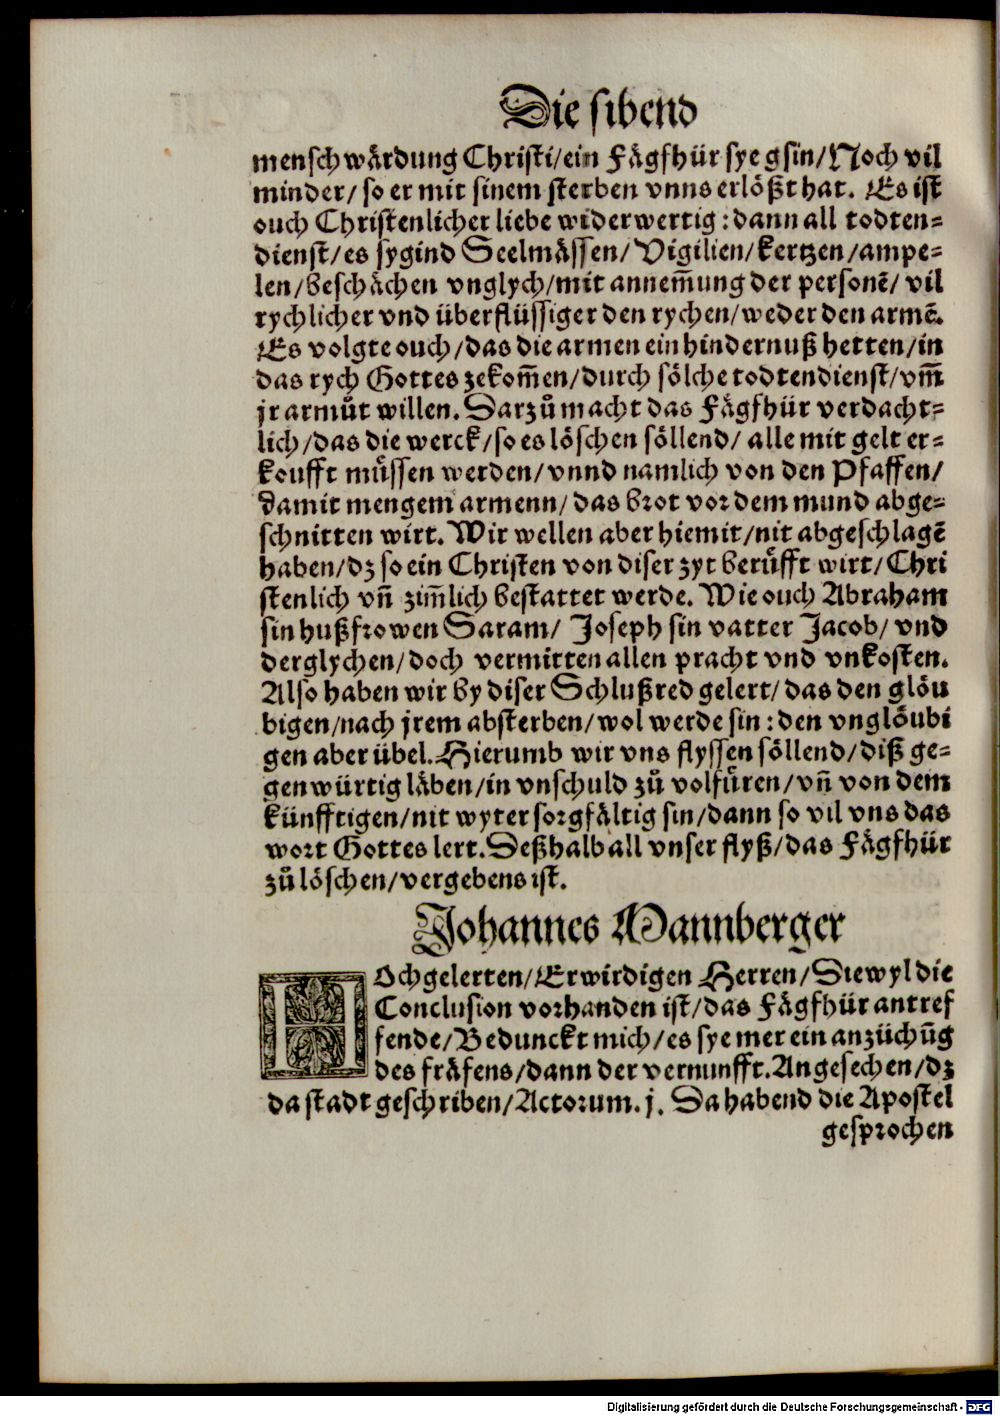 Die sibend
menschwårdung Christi/ein Fågfhür sye gsin/Noch vil
minder/ so er mit sinem sterben vnns erlößt hat. Es ist
ouch Christenlicher liebe widerwertig : dann all todten⸗
dienst/es sygind Seelmåssen/ Vigilien/kertzen/ampe⸗
len/beschåchen vnglych/mit annem̃ung der personẽ/ vil
rychlicher vnd überflüssiger den rychen/weder den armẽ.
Es volgte ouch/das die armen ein hindernuß hetten/in
das rych Gottes zekom̃en/durch sőlche todtendienst/vm̃
jr armůt willen. Darzů macht das Fågfhür verdacht⸗
lich/das die werck/so es lőschen sőllend/ alle mit gelt er⸗
koufft müssen werden/vnnd namlich von den Pfaffen/
damit mengem armenn/das brot vor dem mund abge⸗
schnitten wirt. Wir wellen aber hiemit/nit abgeschlagẽ
haben/dz so ein Christen von diser zyt berüfft wirt/Chri
stenlich vñ zim̃lich bestattet werde. Wie ouch Abraham
sin hußfrowen Saram/ Joseph sin vatter Jacob/ vnd
derglychen/doch vermitten allen pracht vnd vnkosten.
Also haben wir by diser Schlußred gelert/das den glőu
bigen/nach jrem absterben/wol werde sin : den vnglőubi
gen aber übel. Hierumb wir vns flyssen sőllend/diß ge⸗
genwürtig låben/in vnschuld zů volfüren/vñ von dem
künfftigen/nit wyter sorgfåltig sin/dann so vil vns das
wort Gottes lert. Deßhalb all vnser flyß/das Fågfhür
zů lőschen/vergebens ist.
Johannes Mannberger
HOchgelerten/Erwirdigen Herren/Diewyl die
Conclusion vorhanden ist/das Fågfhür antref
fende/Bedunckt mich/es sye mer ein anzüchũg
des fråfens/dann der vernunfft. Angesechen/dz
da stadt geschriben/Actorum. j. Da habend die Apostel
gesprochen
Digitalisierung gefördert durch die Deutsche Forschungsgemeinschaft - DFG